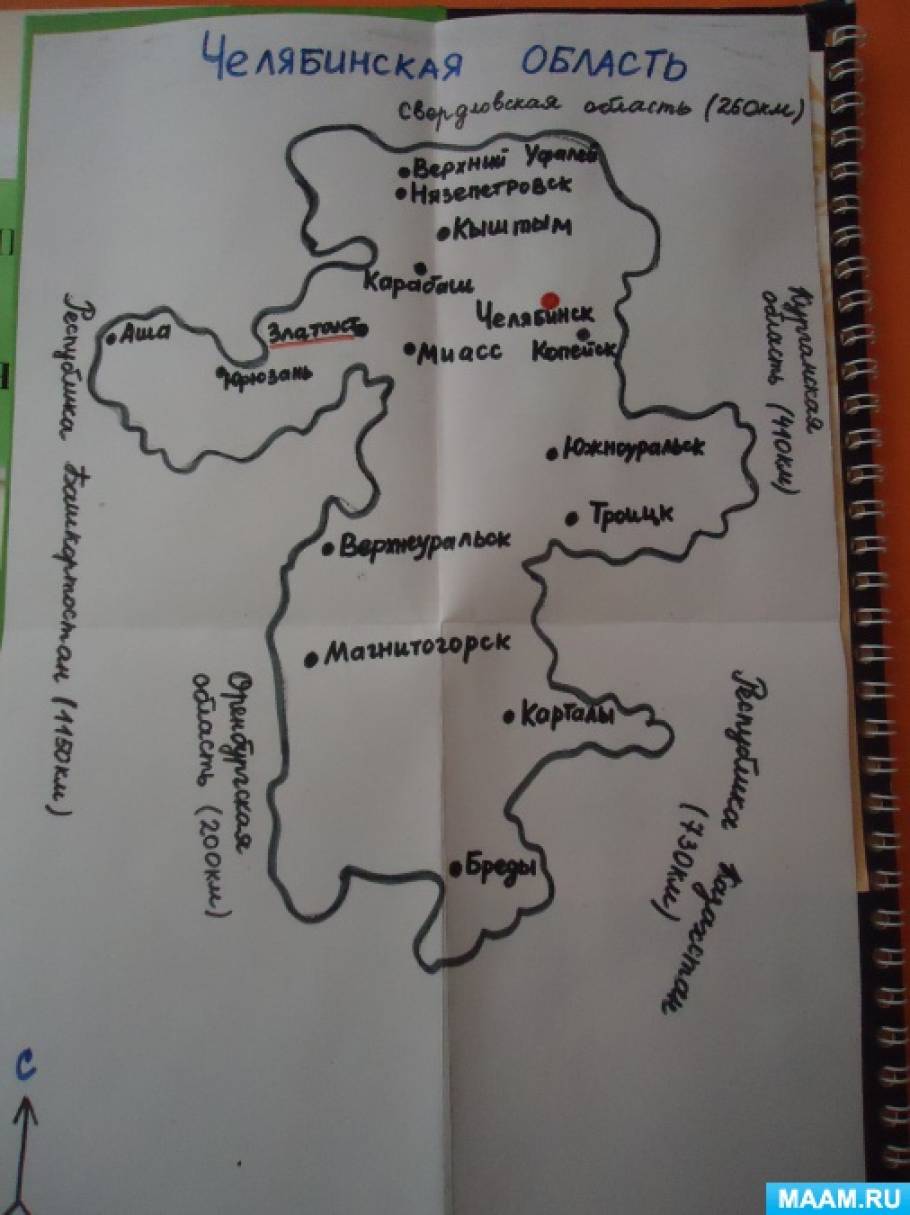 Челябинская область
Свердловская область (260км)
Верхний Уфалей
Нязепетровск
Кыштым
Карабаш
Челябинск
Златоуст
Аша
Миасс
Копейск
Юрюзань
Курганская
область (410км)
Республика Башкортостан (1150км)
Южноуральск
Троицк
Верхнеуральск
Магнитогорск
Оренбургская
область (200км)
Карталы
Республика Казахстан
(730км)
Бреды
С
П
Я
MAAM.RU